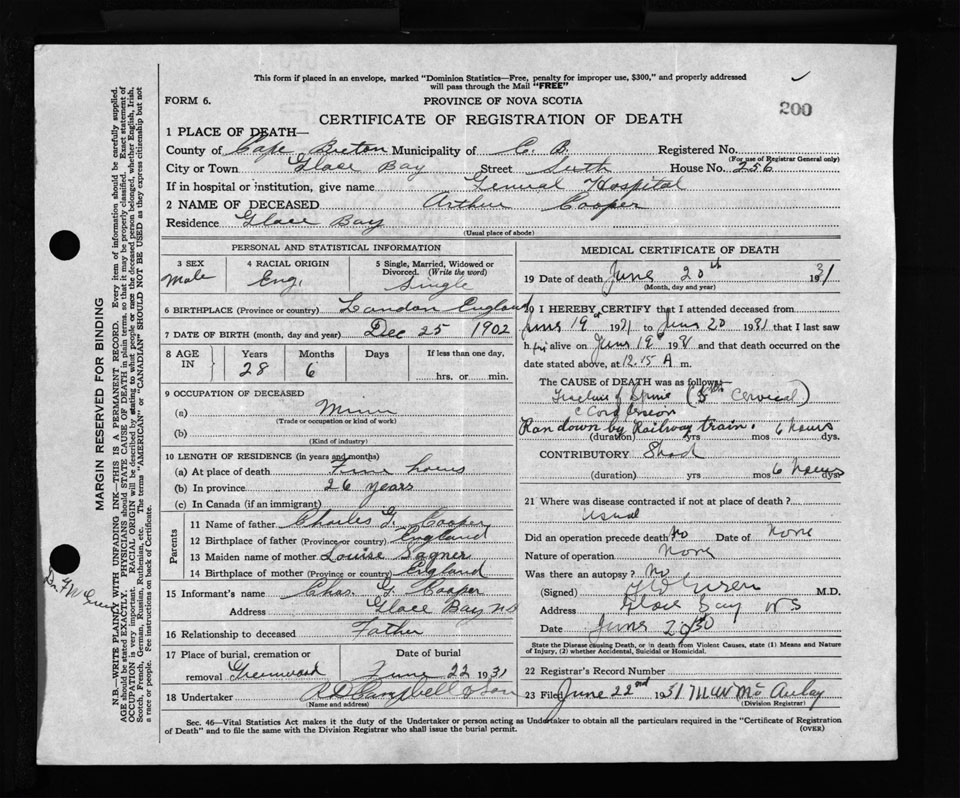 This form if placed in an envelope, marked "Dominion Statistics—Free, penalty for improper use, $300," and properly addressed
will pass through the Mail "FREE"
FORM 6.
PROVINCE OF NOVA SCOTIA
200
CERTIFICATE OF REGISTRATION OF DEATH
1 PLACE OF DEATH—
County of Cape Breton Municipality of C. B. Registered No.
(For use of Registrar General only)
City or Town Glace Bay Street South House No. 256
If in hospital or institution, give name General Hospital
2 NAME OF DECEASED Arthur Cooper
Residence Glace Bay
(Usual place of abode)
PERSONAL AND STATISTICAL INFORMATION
3 SEX Male
4 RACIAL ORIGIN Eng.
5 Single, Married, Widowed or Divorced. (Write the word) Single
6 BIRTHPLACE (Province or country) London England
7 DATE OF BIRTH (month, day and year) Dec 25 1902
8 AGE IN Years Months Days If less than one day,
28 6 hrs. or min.
9 OCCUPATION OF DECEASED
(a) Miner
(Trade or occupation or kind of work)
(b)
(Kind of industry)
10 LENGTH OF RESIDENCE (in years and months)
(a) At place of death hours
(b) In province 26 years
(c) In Canada (if an immigrant)
Parents
11 Name of father Charles G. Cooper
12 Birthplace of father (Province or country) England
13 Maiden name of mother Louise Sagner
14 Birthplace of mother (Province or country) England
15 Informant's name Chas. G. Cooper
Address Glace Bay NS
16 Relationship to deceased Father
17 Place of burial, cremation or removal Greenwood
Date of burial June 22 1931
18 Undertaker R.D. Campbell & Son
(Name and address)
MEDICAL CERTIFICATE OF DEATH
19 Date of death June 20th 1931
(Month, day and year)
20 I HEREBY CERTIFY that I attended deceased from
June 19 1931 to June 20 1931 that I last saw
h im alive on June 19 1931 and that death occurred on the
date stated above, at 12.15 A m.
The CAUSE of DEATH was as follows:
Fracture of Spine (5th Cervical)
c Cord
Ran down by Railway train. 6 hours
(duration) yrs mos dys.
CONTRIBUTORY Shock
(duration) yrs mos 6 hours dys.
21 Where was disease contracted if not at place of death?
usual
Did an operation precede death No Date of None
Nature of operation None
Was there an autopsy? No
(Signed) M.D.
Address Glace Bay NS
Date June 20
State the Disease causing Death, or in death from Violent Causes, state (1) Means and Nature of Injury, (2) whether Accidental, Suicidal or Homicidal.
22 Registrar's Record Number
23 Filed June 22nd 1931 McAulay
(Division Registrar)
Sec. 46—Vital Statistics Act makes it the duty of the Undertaker or person acting as Undertaker to obtain all the particulars required in the "Certificate of Registration
of Death" and to file the same with the Division Registrar who shall issue the burial permit.
(OVER)
MARGIN RESERVED FOR BINDING
N.B.—WRITE PLAINLY WITH UNFADING INK—THIS IS A PERMANENT RECORD. Every item of information should be carefully supplied.
AGE should be stated EXACTLY. PHYSICIANS should STATE CAUSE OF DEATH in plain terms, so that it may be properly classified. Exact statement of
OCCUPATION is very important. RACIAL ORIGIN will be described by stating to what people or race the deceased person belonged, whether English, Irish,
Scotch, French, German, Russian, Ruthenian, etc. The terms "AMERICAN" or "CANADIAN" SHOULD NOT BE USED as they express citizenship but not
a race or people. See instructions on back of Certificate.